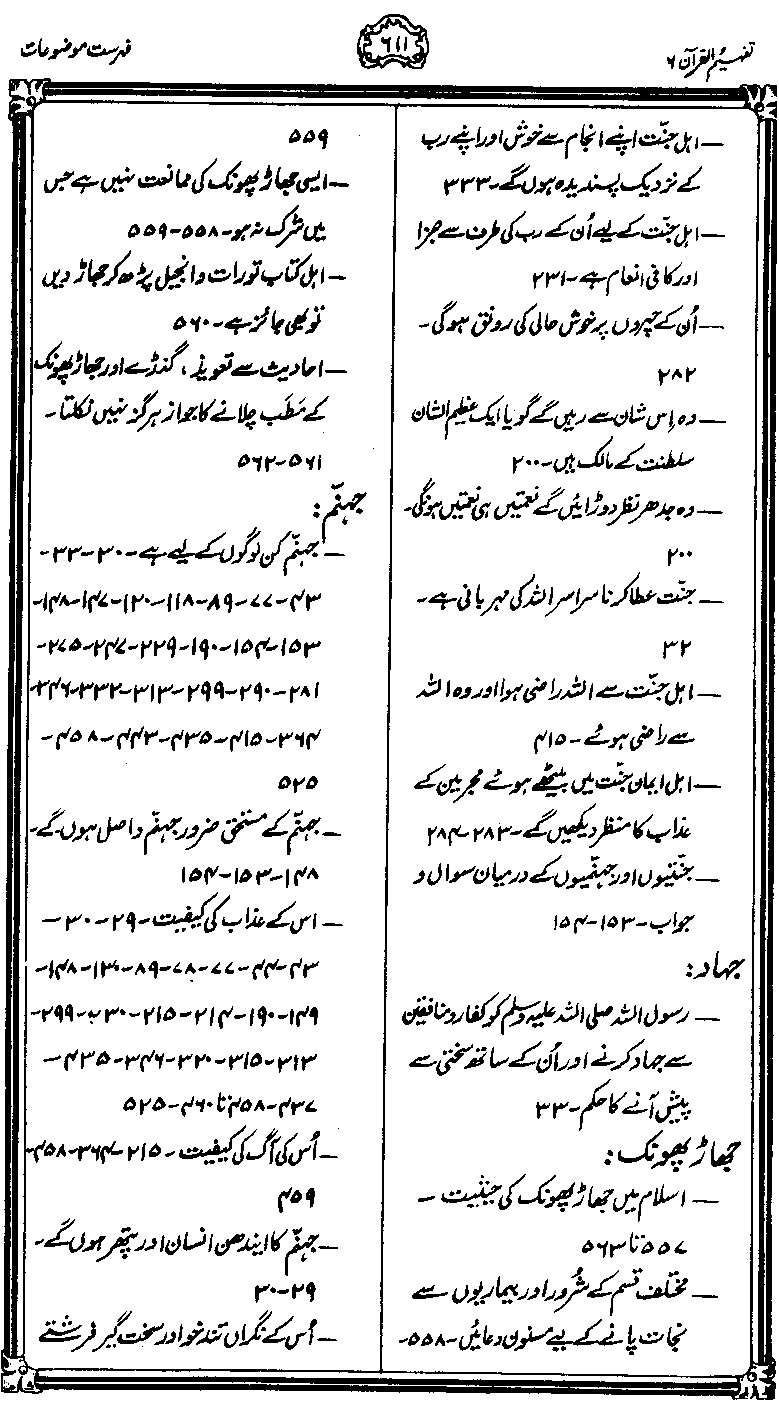 تفہیم القرآن ۶
۶۱۱
فہرست موضوعات
— اہل جنّت اپنے انجام سے خوش اور اپنے رب
کے نزدیک پسندیدہ ہوں گے۔ ۳۳۳
— اہل جنّت کے لیے اُن کے رب کی طرف سے جزا
اور کافی انعام ہے۔ ۲۳۱
— اُن کے چہروں پر خوش حالی کی رونق ہوگی۔
۲۸۲
— وہ اِس شان سے رہیں گے گویا ایک عظیم الشان
سلطنت کے مالک ہیں۔ ۲۰۰
— وہ جدھر نظر دوڑائیں گے نعمتیں ہی نعمتیں ہونگی۔
۲۰۰
— جنّت عطا کرنا سراسر اللہ کی مہربانی ہے۔
۳۲
— اہل جنّت سے اللہ راضی ہوا اور وہ اللہ
سے راضی ہوئے۔ ۴۱۵
— اہل ایمان جنّت میں بیٹھے ہوئے مجرمین کے
عذاب کا منظر دیکھیں گے۔ ۲۸۳-۲۸۴
— جنّتیوں اور جہنّمیوں کے درمیان سوال و
جواب۔ ۱۵۳-۱۵۴
جہاد:
— رسول اللہ صلی اللہ علیہ وسلم کو کفار و منافقین
سے جہاد کرنے اور اُن کے ساتھ سختی سے
پیش آنے کا حکم۔ ۳۳
جھاڑ پھونک:
— اسلام میں جھاڑ پھونک کی حیثیت —
۵۵۷ تا ۵۶۳
— مختلف قسم کے شُرور اور بیماریوں سے
نجات پانے کے لیے مسنون دعائیں۔ ۵۵۸-
۵۵۹
— ایسی جھاڑ پھونک کی ممانعت نہیں ہے جس
میں شرک نہ ہو۔ ۵۵۸-۵۵۹
— اہل کتاب تورات و انجیل پڑھ کر جھاڑ دیں
تو بھی جائز ہے۔ ۵۶۰
— احادیث سے تعویذ، گنڈے اور جھاڑ پھونک
کے مَطَب چلانے کا جواز ہرگز نہیں نکلتا۔
۵۶۱-۵۶۲
جہنّم:
— جہنّم کن لوگوں کے لیے ہے۔ ۳۰-۳۳-
۴۳-۷۷-۸۹-۱۱۸-۱۲۰-۱۴۷-۱۴۸-
۱۵۳-۱۵۴-۱۹۰-۲۲۹-۲۴۷-۲۷۵-
۲۸۱-۲۹۰-۲۹۹-۳۱۳-۳۳۲-۳۴۶-
۳۶۴-۴۱۵-۴۳۵-۴۴۳-۴۵۸-
۵۲۵
— جہنّم کے مستحق ضرور جہنّم واصل ہوں گے۔
۱۴۸-۱۵۳-۱۵۴
— اس کے عذاب کی کیفیت۔ ۲۹-۳۰-
۴۳-۴۴-۷۷-۷۸-۸۹-۱۳۰-۱۴۸-
۱۴۹-۱۹۰-۲۱۴-۲۱۵-۲۳۰-۲۹۹-
۳۱۳-۳۱۵-۳۲۰-۳۴۶-۴۳۵-
۴۳۷-۴۵۸ تا ۴۶۰-۵۲۵
— اُس کی آگ کی کیفیت۔ ۲۱۵-۳۶۴-۴۵۸-
۴۵۹
— جہنّم کا ایندھن انسان اور پتھر ہوں گے۔
۲۹-۳۰
— اُس کے نگراں تند خو اور سخت گیر فرشتے